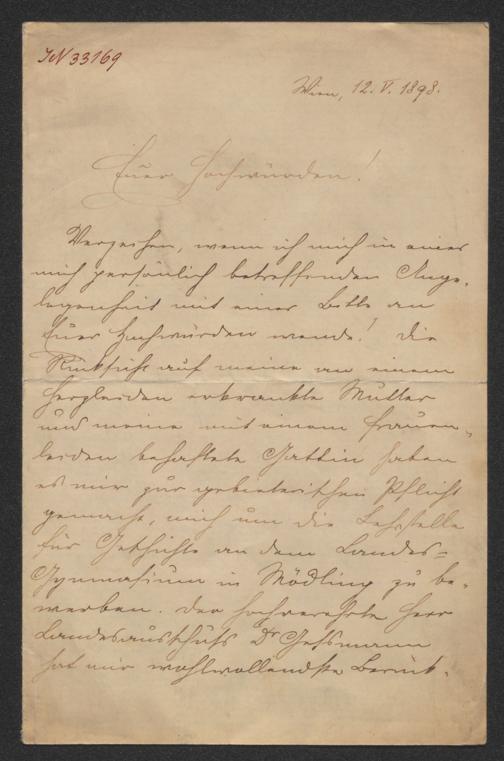 JN 33169
Wien, 12. V. 1898.
Euer Hochwürden!
Verzeihen, wenn ich mich in einer
mich persönlich betreffenden Ange-
legenheit mit einer Bitte an
Euer Hochwürden wende! Die
Rücksicht auf meine an einem
Herzleiden erkrankte Mutter
und meine mit einem Frauen-
leiden behaftete Gattin haben
es mir zur gebieterischen Pflicht
gemacht, mich um die Lehrstelle
für Geschichte an dem Landes-
Gymnasium in Mödling zu be-
werben. Der hochverehrte Herr
Landesausschuß Dr Geßmann
hat mir wohlwollendste Berück-